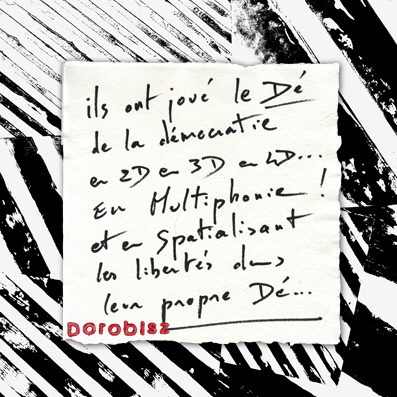 ils ont joué le Dé
de la démocratie
en 2D en 3D en 4D...
En Multiphonie !
et en Spatialisant
les libertés dans
leur propre Dé...
Dorobisz